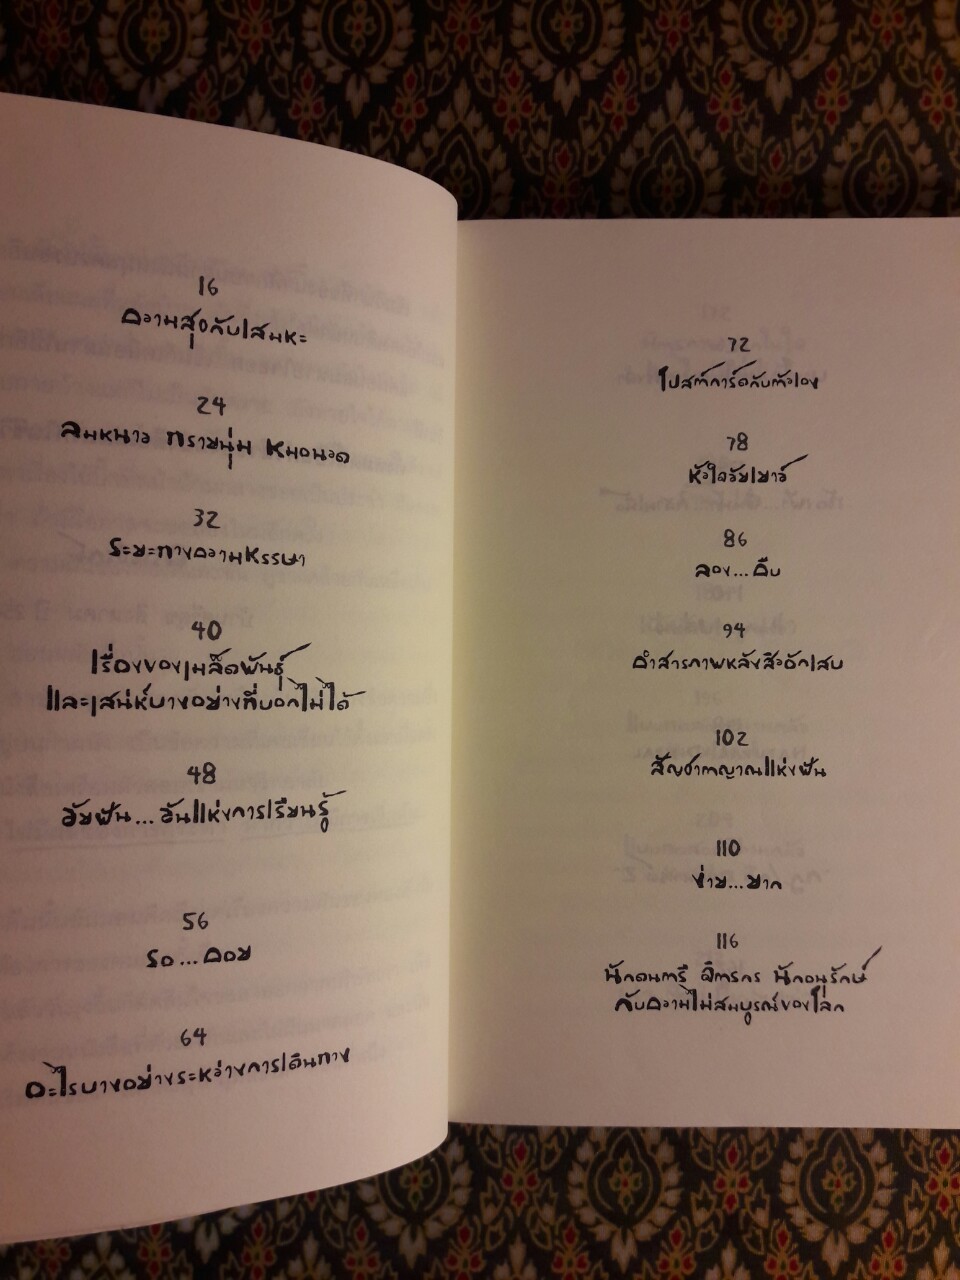 16
ความสุขกับเสมหะ
24
ลมหนาว ทรายนุ่ม หมอนวด
32
ระยะทางความหรรษา
40
เรื่องของเมล็ดพันธุ์
และเสน่ห์บางอย่างที่บอกไม่ได้
48
วัยฝัน...วันแห่งการเรียนรู้
56
รอ...คอย
64
อะไรบางอย่างระหว่างการเดินทาง
72
โปสต์การ์ดกับตัวเอง
78
หัวใจวัยเยาว์
86
ลอง...คืบ
94
คำสารภาพหลังสิวอักเสบ
102
สัญชาตญาณแห่งฝัน
110
ง่าย...ยาก
116
นักดนตรี จิตรกร นักอนุรักษ์
กับความไม่สมบูรณ์ของโลก